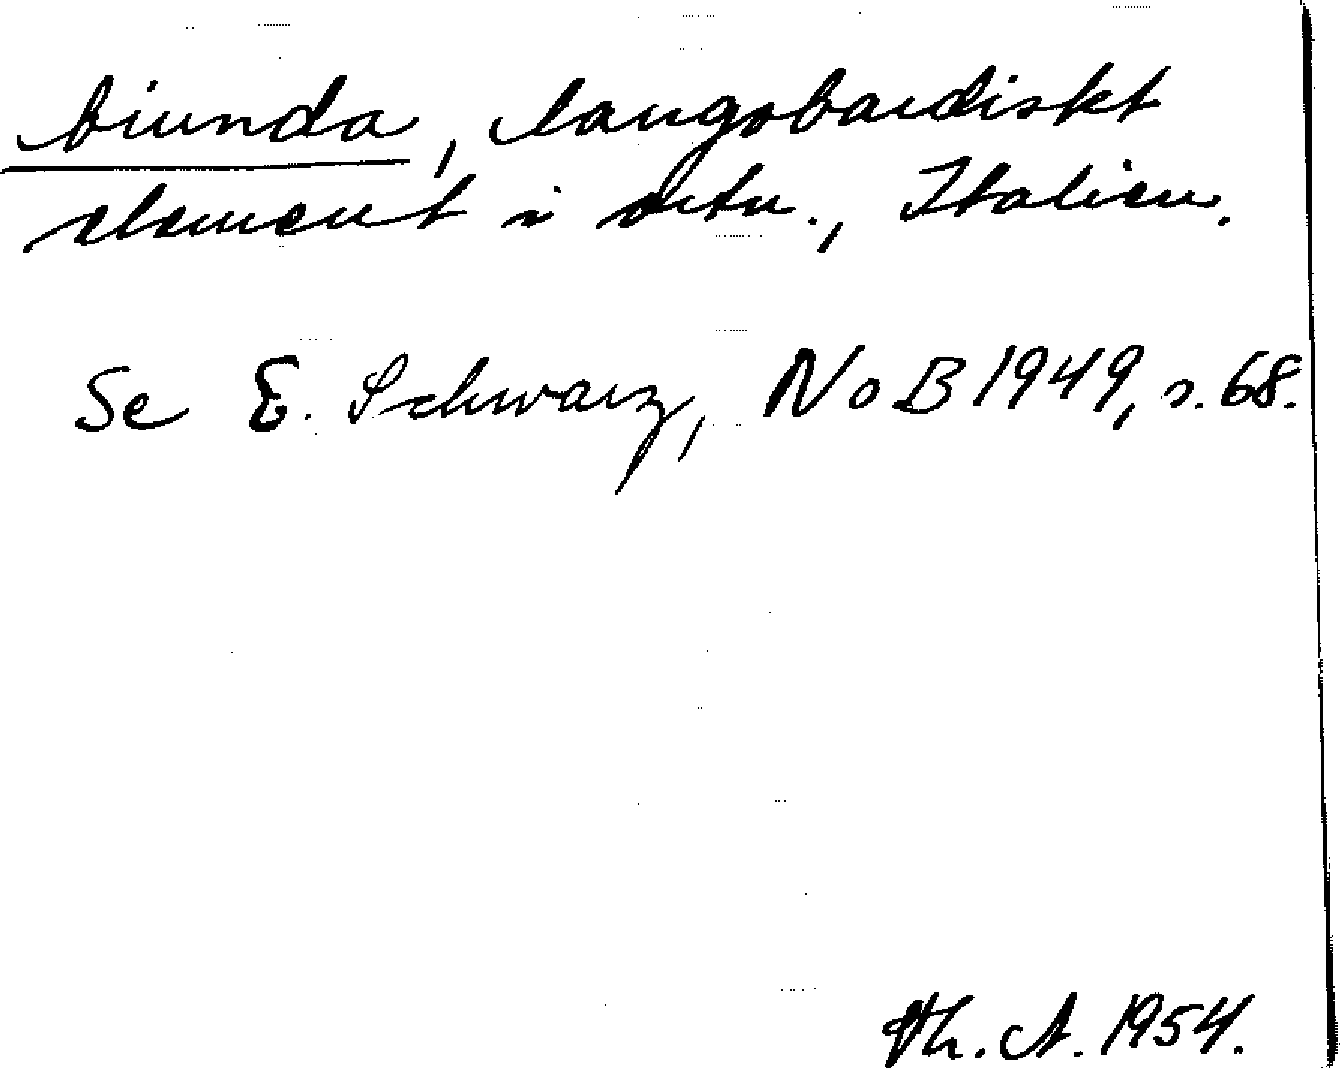 biunda, langobardiskt
element i ortn., Italien.
Se E. Schwarz, NoB 1949, s. 68.
Th. A. 1954.